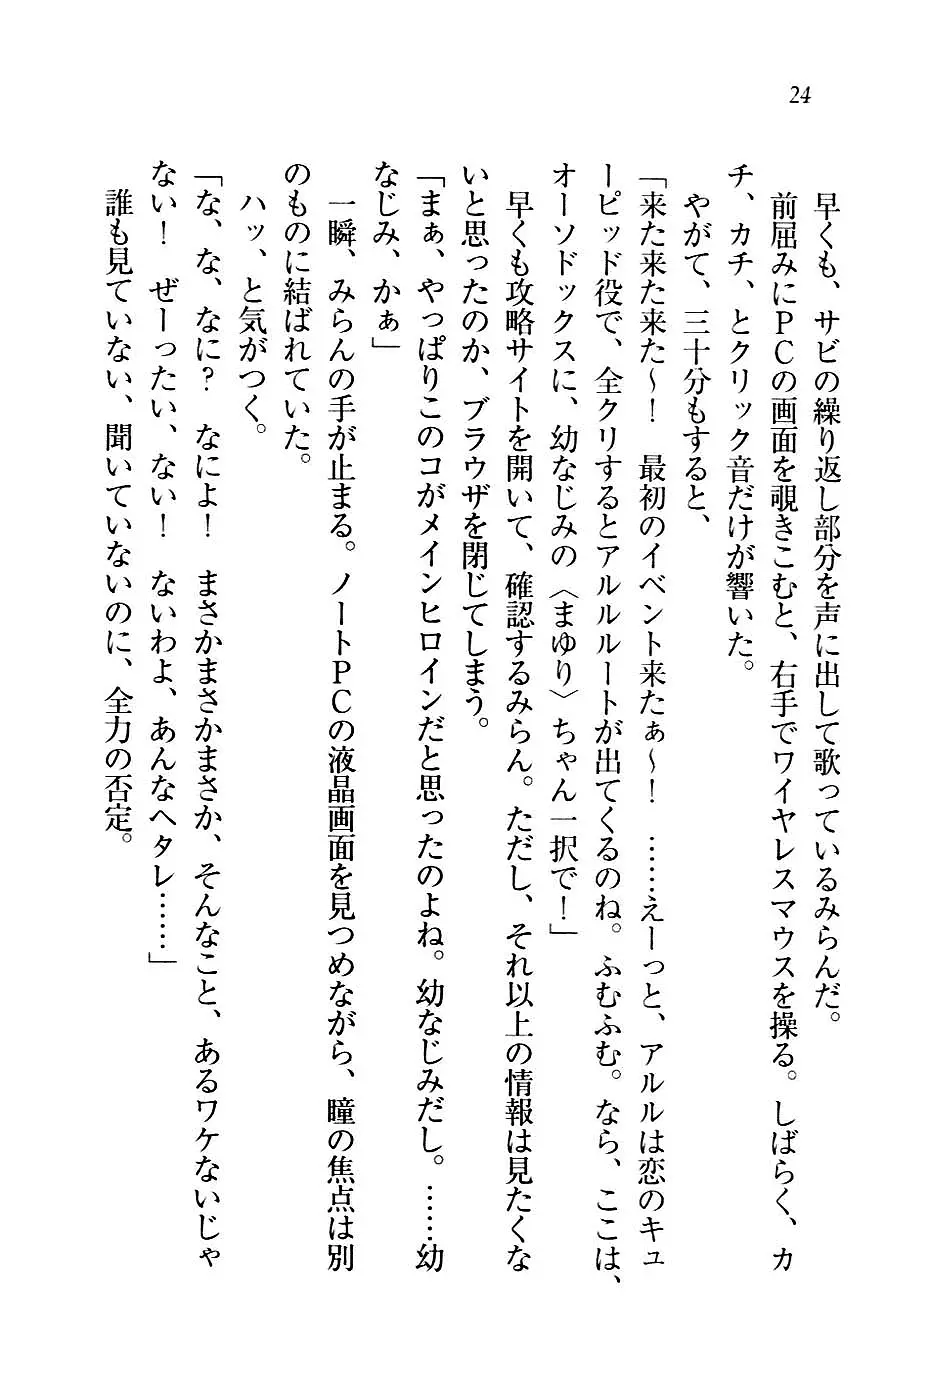 24
早くも、サビの繰り返し部分を声に出して歌っているみらんだ。
前屈みにPCの画面を覗きこむと、右手でワイヤレスマウスを操る。しばらく、カ
チ、カチ、とクリック音だけが響いた。
やがて、三十分もすると、
「来た来た来た～！　最初のイベント来たぁ～！　……えーっと、アルルは恋のキュ
ーピッド役で、全クリするとアルルルートが出てくるのね。ふむふむ。なら、ここは、
オーソドックスに、幼なじみの〈まゆり〉ちゃん一択で！」
早くも攻略サイトを開いて、確認するみらん。ただし、それ以上の情報は見たくな
いと思ったのか、ブラウザを閉じてしまう。
「まぁ、やっぱりこのコがメインヒロインだと思ったのよね。幼なじみだし。……幼
なじみ、かぁ」
一瞬、みらんの手が止まる。ノートPCの液晶画面を見つめながら、瞳の焦点は別
のものに結ばれていた。
ハッ、と気がつく。
「な、な、なに？　なによ！　まさかまさかまさか、そんなこと、あるワケないじゃ
ない！　ぜーったい、ない！　ないわよ、あんなヘタレ……」
誰も見ていない、聞いていないのに、全力の否定。